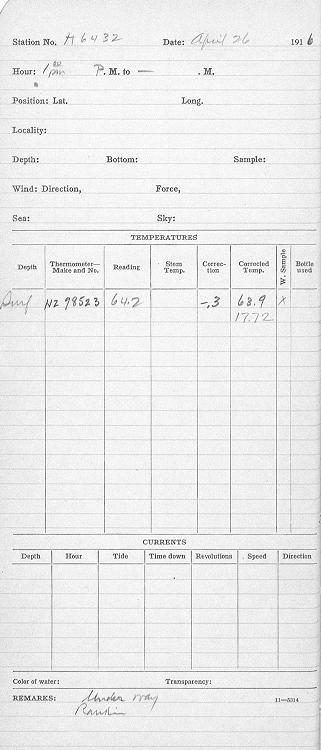 Station No. H6432 Date: April 26 1916
Hour: 1 00 pm P. M. to — . M.
Position: Lat. Long.
Locality:
Depth: Bottom: Sample:
Wind: Direction, Force,
Sea: Sky:
TEMPERATURES
Depth Thermometer—Make and No. Reading Stem Temp. Correction Corrected Temp. W. Sample Bottle used
Surf NZ 98523 64.2 -.3 63.9 X
17.72
CURRENTS
Depth Hour Tide Time down Revolutions Speed Direction
Color of water: Transparency:
REMARKS: Under way 11—5314
Rankin